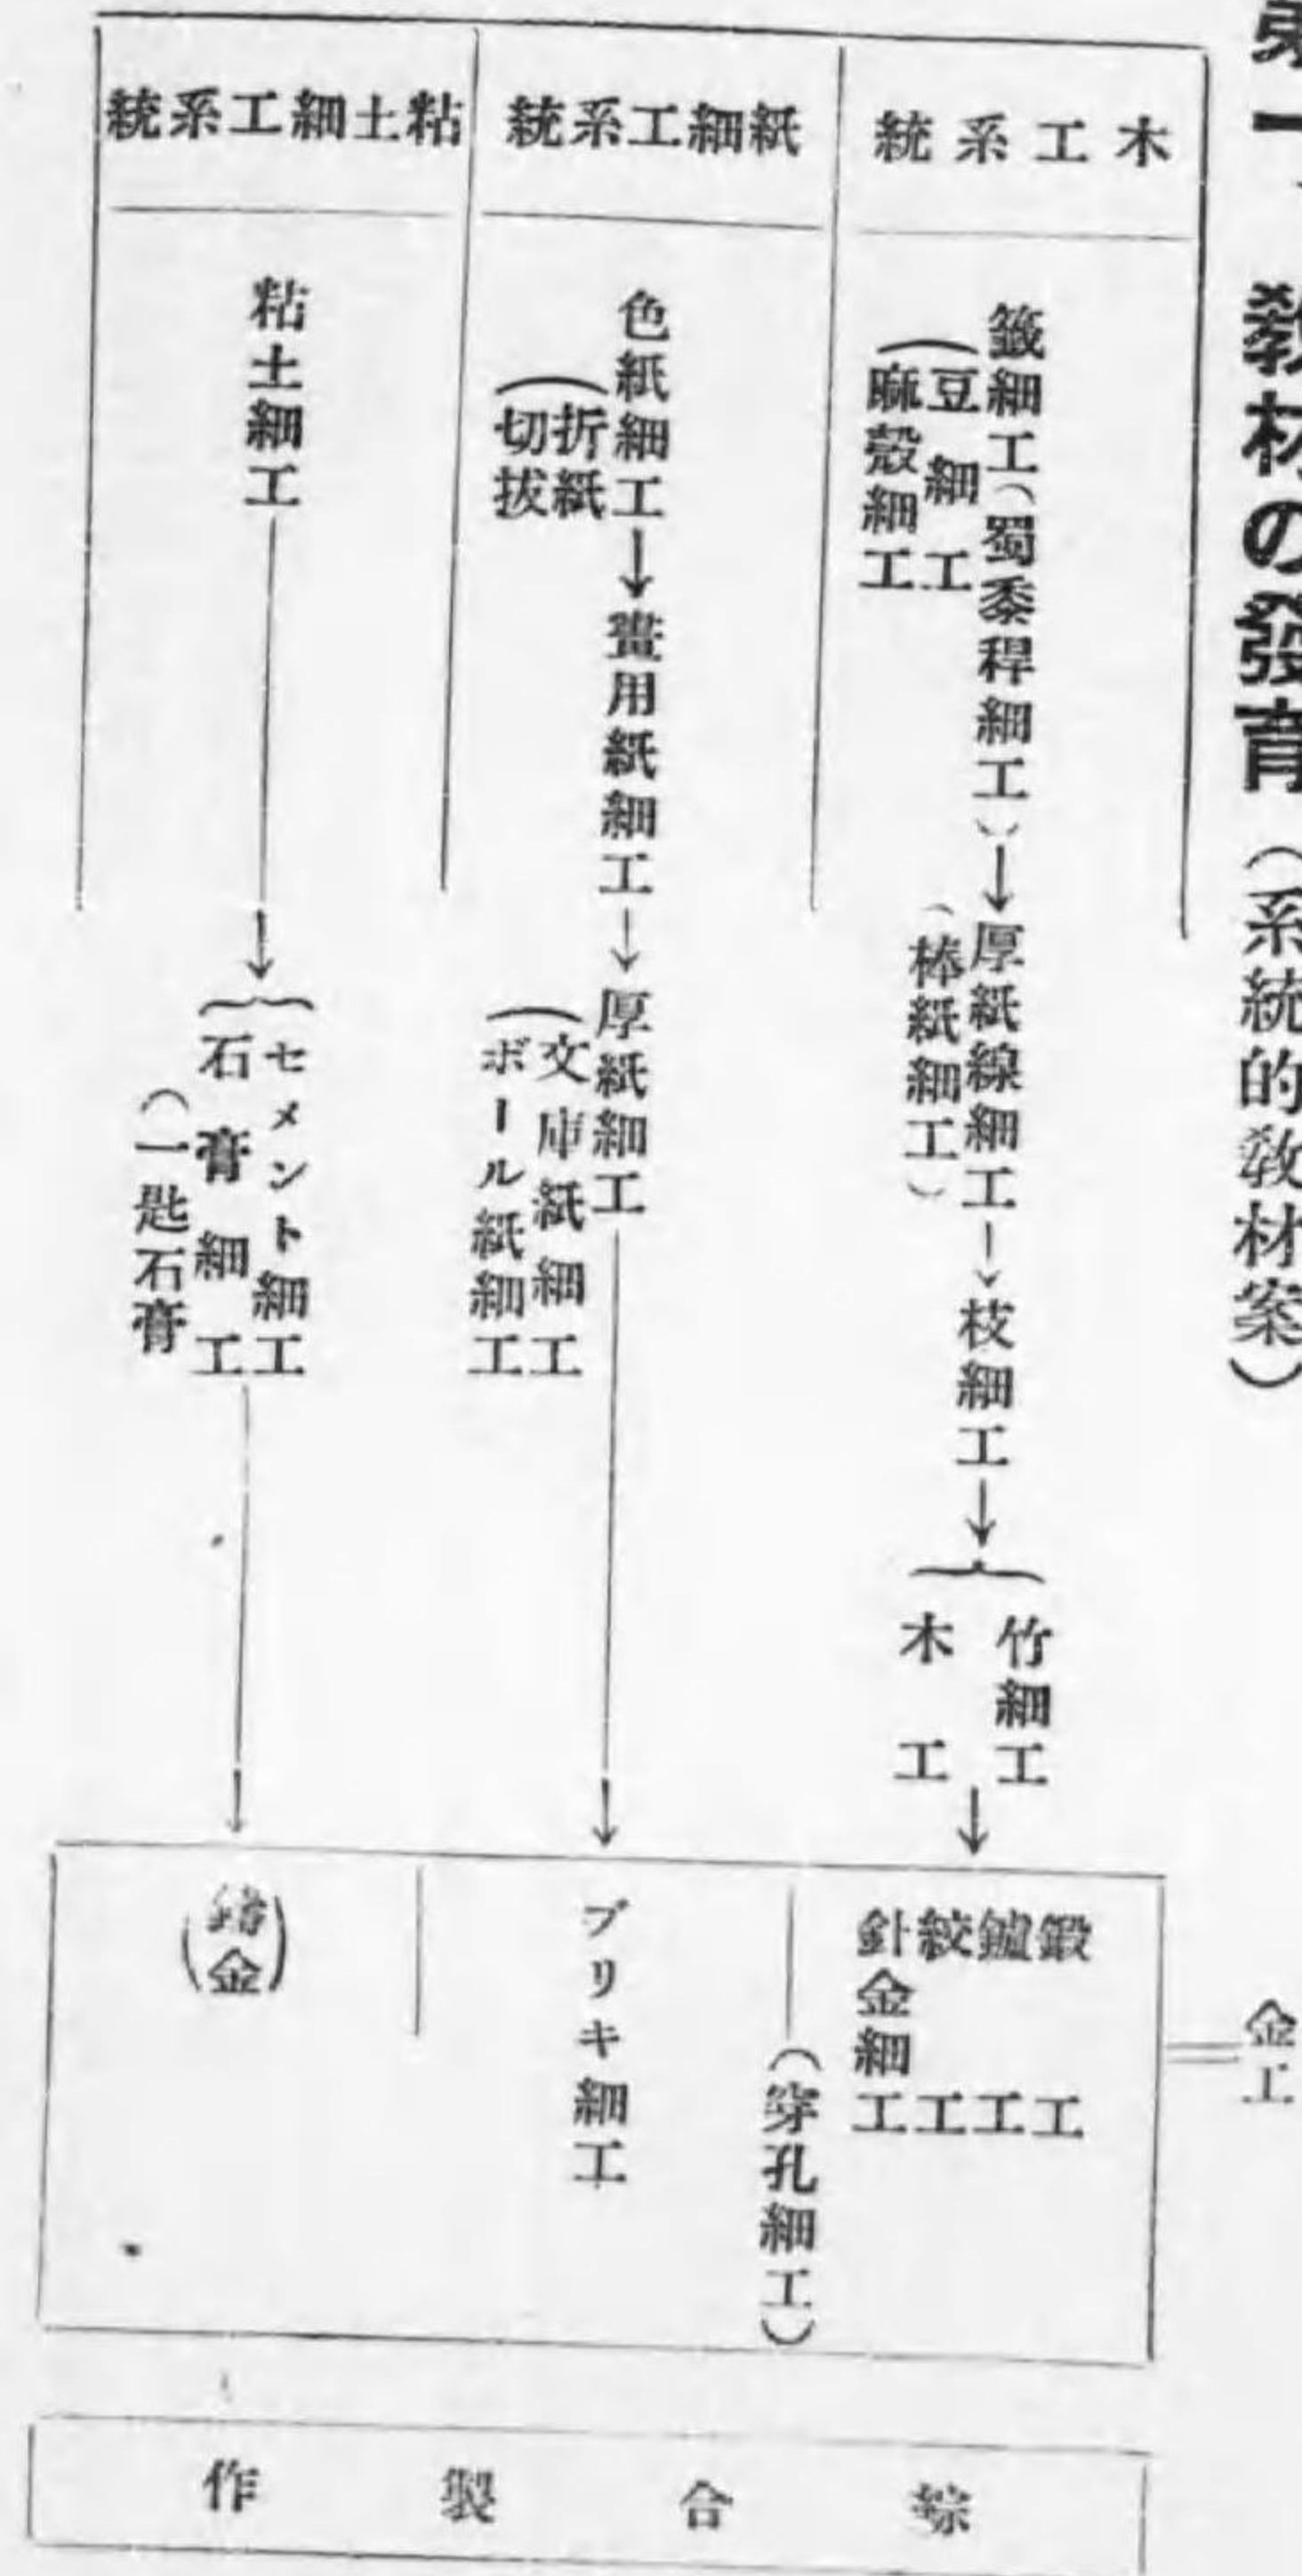 第一、教材の發育（系統的教材案）
木工系統
籤細工（蜀黍稈細工）→厚紙線細工→枝細工→
（豆細工
麻殼細工
（棒紙細工）
竹細工
木工
紙細工系統
色紙細工→畫用紙細工→厚紙細工
（折紙
切拔
（文庫紙細工
ボール紙細工
粘土細工系統
粘土細工
セメント細工
石膏細工
（一匙石膏
金工
鍛工
鑢工
絞工
針金細工
（穿孔細工）
ブリキ細工
（鑄金）
綜合製作